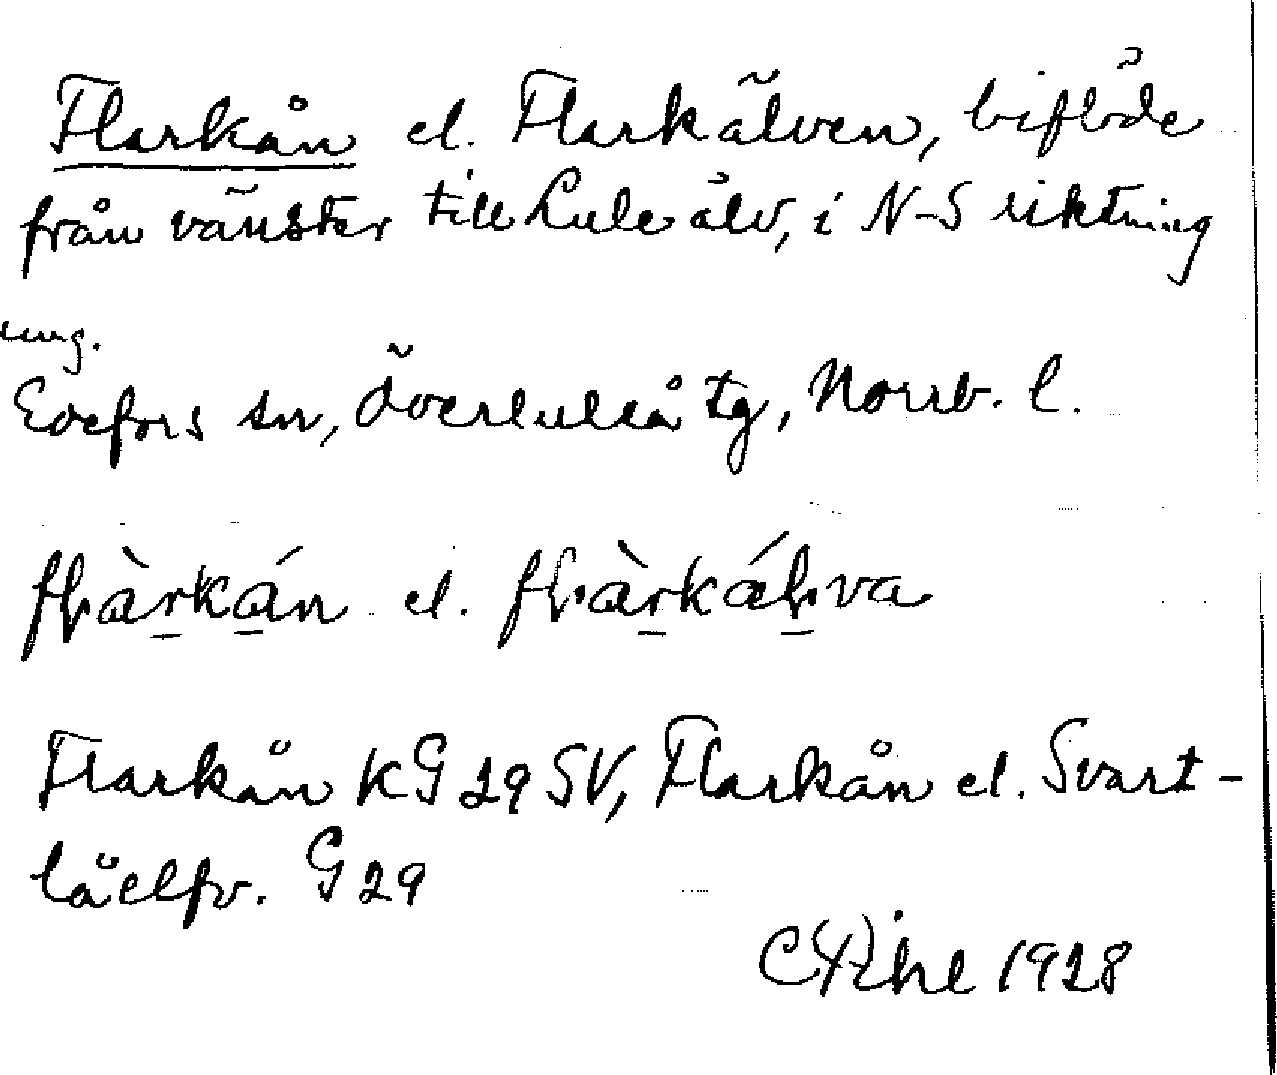 Flarkån el. Flarkälven, biflöde
från vänster till Lule älv, i N-S riktning
ung.
Edefors sn, Överluleå tg, Norrb. l.
el.
Flarkån KG 29 SV, Flarkån el. Svart-
låelfv. G 29
1928